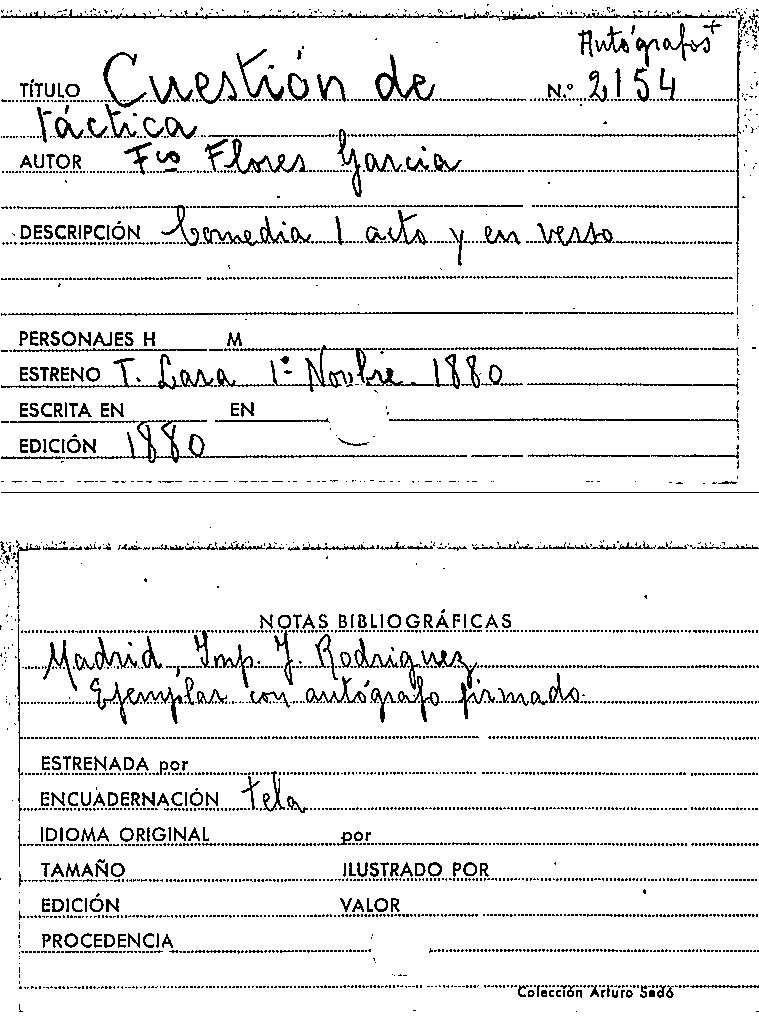 Autógrafos +
TÍTULO Cuestión de N.º 2154
táctica
AUTOR Fco Flores Garcia
DESCRIPCIÓN Comedia 1 acto y en verso
PERSONAJES H M
ESTRENO T. Lara 1º Novbre. 1880
ESCRITA EN EN
EDICIÓN 1880
NOTAS BIBLIOGRÁFICAS
Madrid, Imp. J. Rodriguez
Ejemplar con autógrafo firmado.
ESTRENADA por
ENCUADERNACIÓN tela
IDIOMA ORIGINAL por
TAMAÑO ILUSTRADO POR
EDICIÓN VALOR
PROCEDENCIA
Colección Arturo Sedó